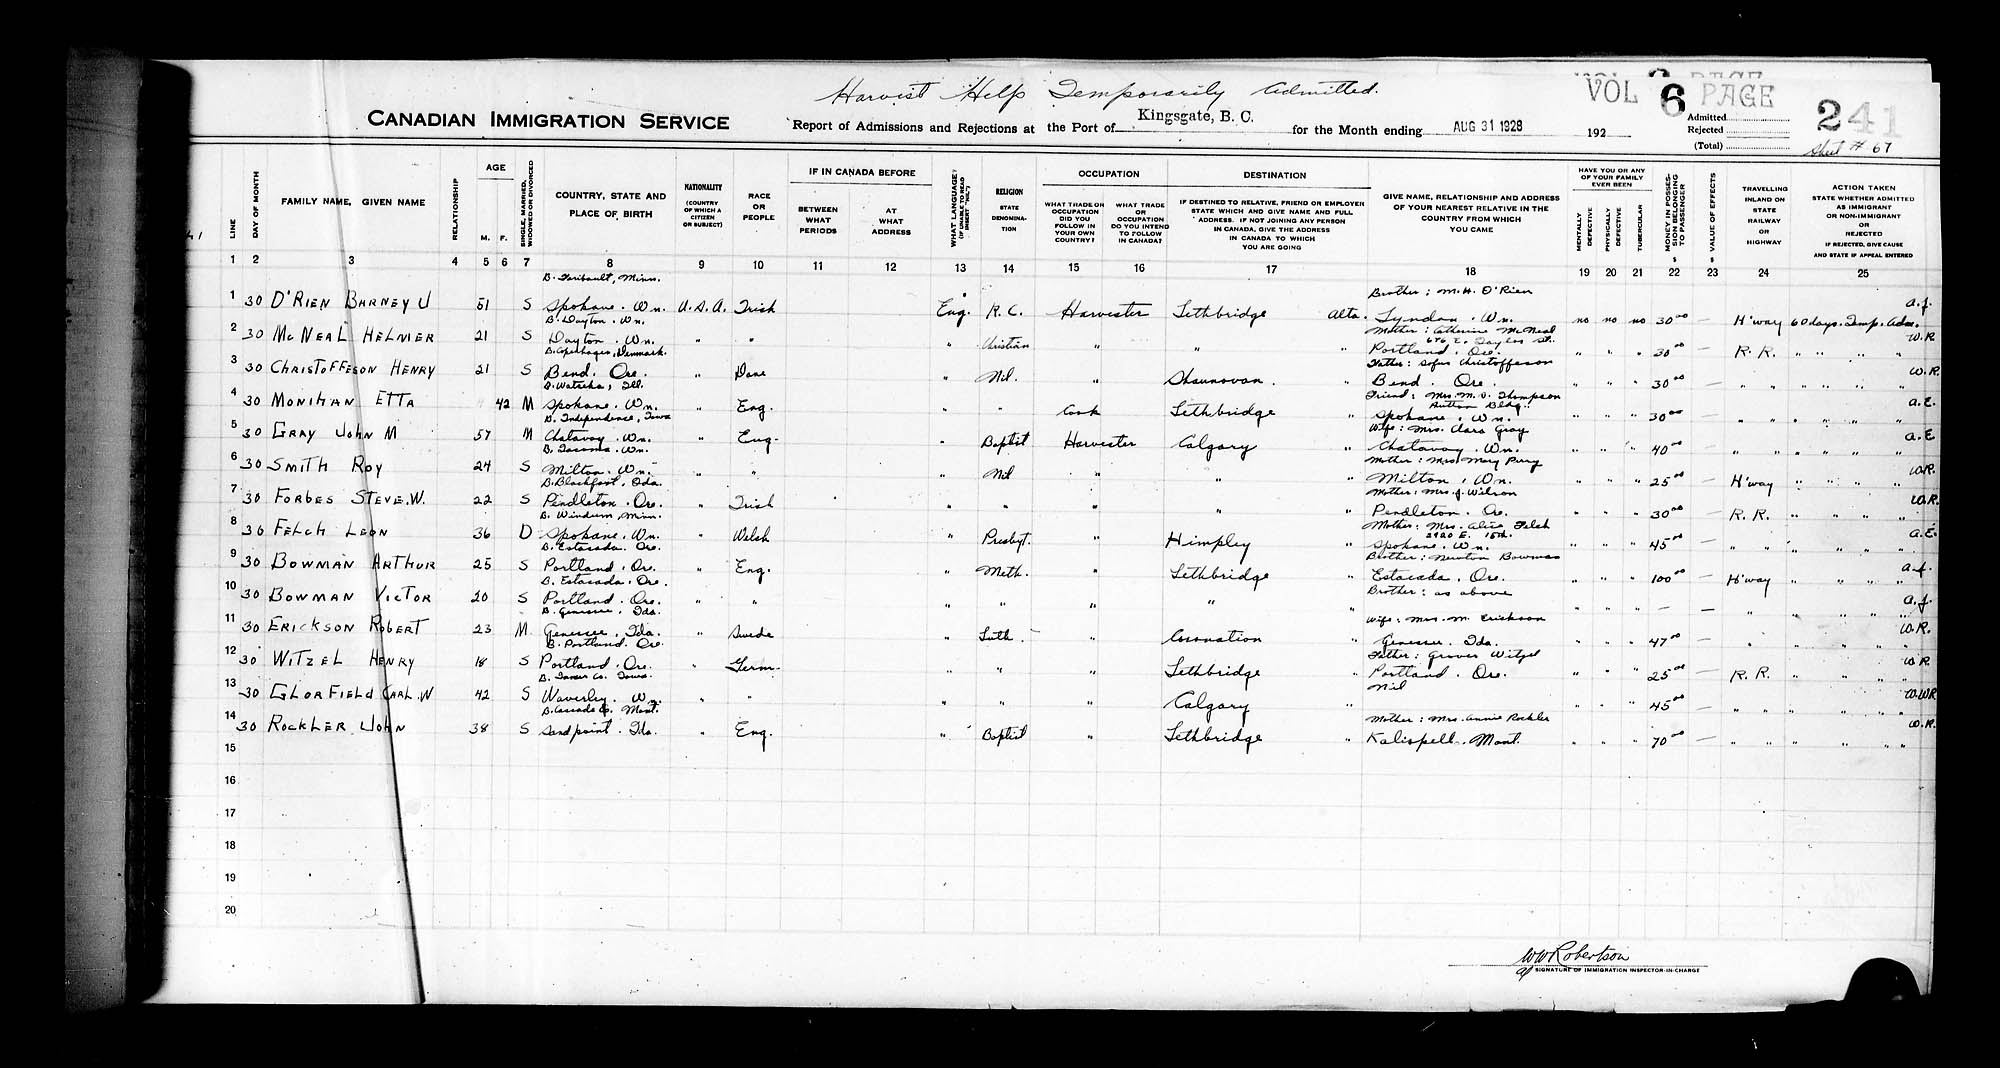 Harvest Help Temporarily Admitted.
VOL 6 PAGE 241
CANADIAN IMMIGRATION SERVICE
Report of Admissions and Rejections at the Port of Kingsgate, B. C. for the Month ending AUG 31 1928 192
Admitted
Rejected
(Total)
Sheet # 67
LINE
DAY OF MONTH
FAMILY NAME, GIVEN NAME
RELATIONSHIP
AGE
M. F.
SINGLE, MARRIED, WIDOWED OR DIVORCED
COUNTRY, STATE AND PLACE OF BIRTH
NATIONALITY (COUNTRY OF WHICH A CITIZEN OR SUBJECT)
RACE OR PEOPLE
IF IN CANADA BEFORE
BETWEEN WHAT PERIODS
AT WHAT ADDRESS
WHAT LANGUAGE? (IF UNABLE TO READ INSERT "NIL")
RELIGION STATE DENOMINATION
OCCUPATION
WHAT TRADE OR OCCUPATION DID YOU FOLLOW IN YOUR OWN COUNTRY?
WHAT TRADE OR OCCUPATION DO YOU INTEND TO FOLLOW IN CANADA?
DESTINATION
IF DESTINED TO RELATIVE, FRIEND OR EMPLOYER STATE WHICH AND GIVE NAME AND FULL ADDRESS. IF NOT JOINING ANY PERSON IN CANADA, GIVE THE ADDRESS IN CANADA TO WHICH YOU ARE GOING
GIVE NAME, RELATIONSHIP AND ADDRESS OF YOUR NEAREST RELATIVE IN THE COUNTRY FROM WHICH YOU CAME
HAVE YOU OR ANY OF YOUR FAMILY EVER BEEN
MENTALLY DEFECTIVE
PHYSICALLY DEFECTIVE
TUBERCULAR
MONEY IN POSSESSION BELONGING TO PASSENGER $
VALUE OF EFFECTS $
TRAVELLING INLAND ON STATE RAILWAY OR HIGHWAY
ACTION TAKEN STATE WHETHER ADMITTED AS IMMIGRANT OR NON-IMMIGRANT OR REJECTED IF REJECTED, GIVE CAUSE AND STATE IF APPEAL ENTERED
1 2 3 4 5 6 7 8 9 10 11 12 13 14 15 16 17 18 19 20 21 22 23 24 25
B. Faribault, Minn. Brother: M. H. O'Rien
1 30 O'RIEN BARNEY J 51 S Spokane. Wn. U.S.A. Irish Eng. R.C. Harvester Lethbridge Alta. Lyndon. Wn. no no no 30 00 — H'way 60 days. Temp. Adm. A.J.
B. Dayton. Wn. Mother: Catherine McNeal
2 30 MCNEAL HELMER 21 S Dayton. Wn. " " " Christian " " " Portland. Ore. " " " 30 00 — R. R. " " " W.R.
B. Copenhagen, Denmark. Father: Sofus Christoffeson
3 30 CHRISTOFFESON HENRY 21 S Bend. Ore. " Dane " Nil. " Shaunovan. " Bend. Ore. " " " 30 00 — " " " " " W.R.
B. Watseka, Ill. Friend: Mrs. M. S. Thompson
4 30 MONIHAN ETTA 42 M Spokane. Wn. " Eng. " " Cook Lethbridge " Spokane. Wn. " " " 30 00 — " " " " " A.E.
B. Independence, Iowa Wife: Mrs. Clara Gray
5 30 GRAY JOHN M 57 M Chataroy. Wn. " Eng. " Baptist Harvester Calgary " Chataroy. Wn. " " " 40 00 — " " " " " A.E
B. Tacoma. Wn. Mother: Mrs Mary Perry
6 30 SMITH ROY 24 S Milton. Wn. " " " Nil " " " Milton. Wn. " " " 25 00 — H'way " " " W.R.
B. Blackfoot, Ida. Mother: Mrs. J. Wilson
7 30 FORBES STEVE.W. 22 S Pendleton. Ore. " Irish " " " " " Pendleton. Ore. " " " 30 00 — R. R. " " " W.R.
B. Windum, Minn. Mother: Mrs. Alice Felch
2920 E. 15th.
8 30 FELCH LEON 36 D Spokane. Wn. " Welsh " Presbyt. " Himpley " Spokane. Wn. " " " 45 00 — " " " " " A.E.
B. Estacada. Ore. Brother: Newton Bowman
9 30 BOWMAN ARTHUR 25 S Portland. Ore. " Eng. " Meth. " Lethbridge " Estacada. Ore. " " " 100 00 — H'way " " " A.J.
B. Estacada. Ore. Brother: as above
10 30 BOWMAN VICTOR 20 S Portland. Ore. " " " " " " " " " " — — " " " " A.J.
B. Genesee, Ida. Wife: Mrs. M. Erickson
11 30 ERICKSON ROBERT 23 M Genesee. Ida. " Swede " Luth. " Coronation " Genesee. Ida. " " " 47 00 — " " " " W.R.
B. Portland. Ore. Father: Grover Witzel
12 30 WITZEL HENRY 18 S Portland. Ore. " Germ. " " " Lethbridge " Portland. Ore. " " " 25 00 — R. R. " " " W.R.
Iowa. Nil
13 30 GLORFIELD CARL.W 42 S Waverley. Wn. " " " " " Calgary " " " " 45 00 — " " " " " W.WR
B. Cascade Co. Mont. Mother: Mrs. Annie Rockler
14 30 ROCKLER JOHN 38 S Sandpoint. Ida. " Eng. " Baptist " Lethbridge " Kalispell. Mont. " " " 70 00 — " " " " " W.R.
15
16
17
18
19
20
WW Robertson
SIGNATURE OF IMMIGRATION INSPECTOR-IN-CHARGE